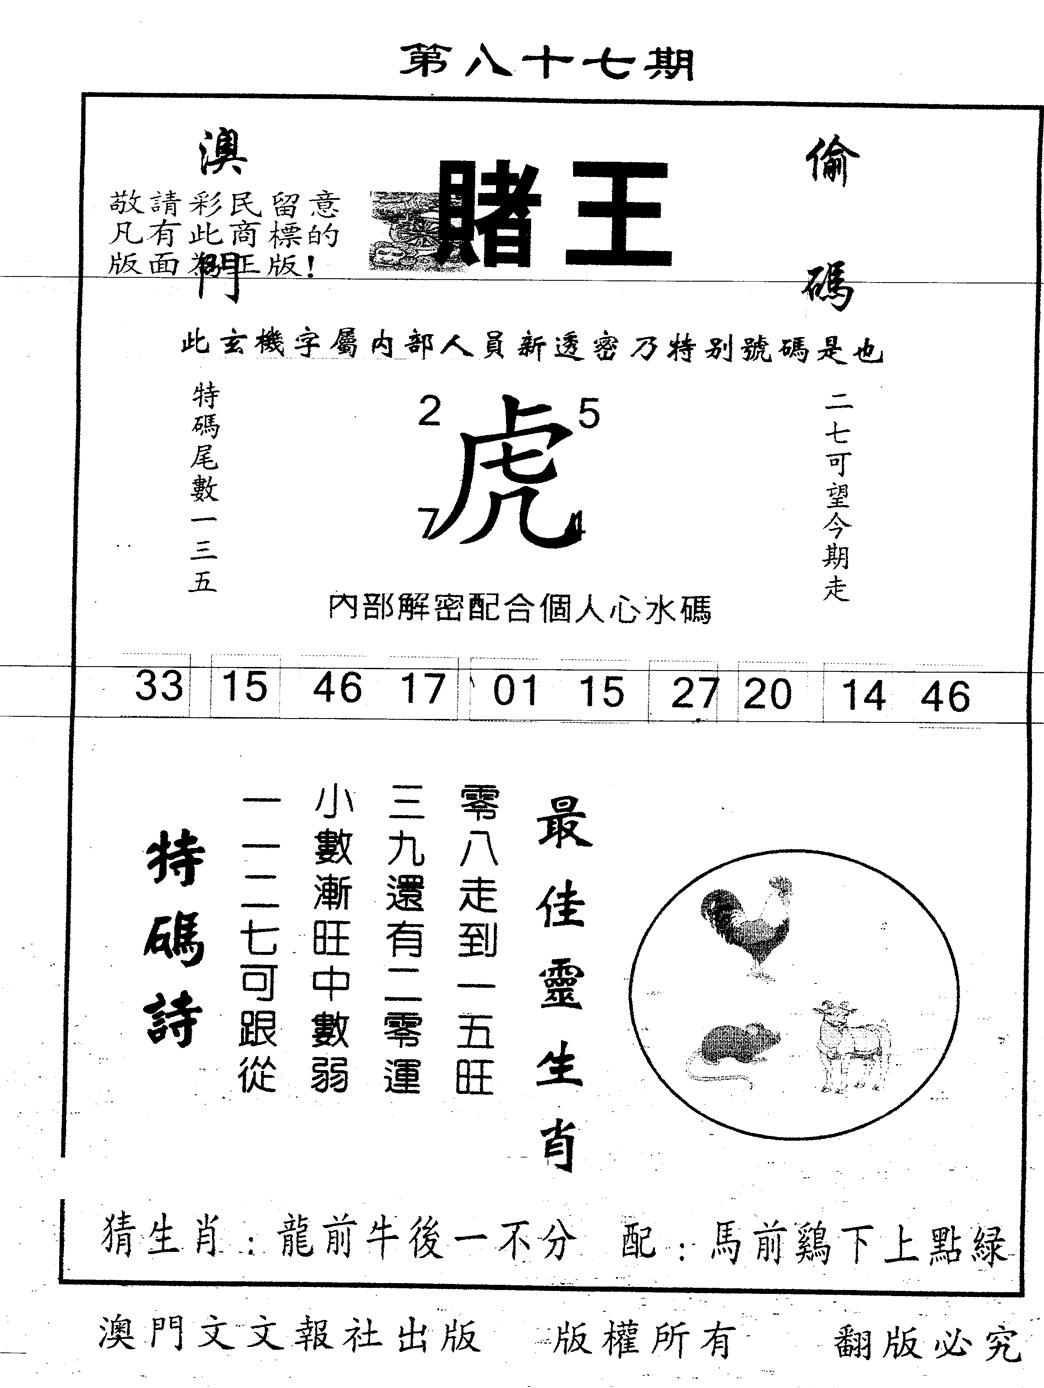 第八十七期
澳門
賭王
偷碼
敬請彩民留意
凡有此商標的
版面為正版!
此玄機字屬內部人員新透密乃特别號碼是也
特碼尾數一三五
2 5
虎
7 4
二七可望今期走
內部解密配合個人心水碼
33 15 46 17 01 15 27 20 14 46
特碼詩
一一二七可跟從
小數漸旺中數弱
三九還有二零運
零八走到一五旺
最佳靈生肖
猜生肖:龍前牛後一不分 配:馬前鷄下上點緑
澳門文文報社出版 版權所有 翻版必究